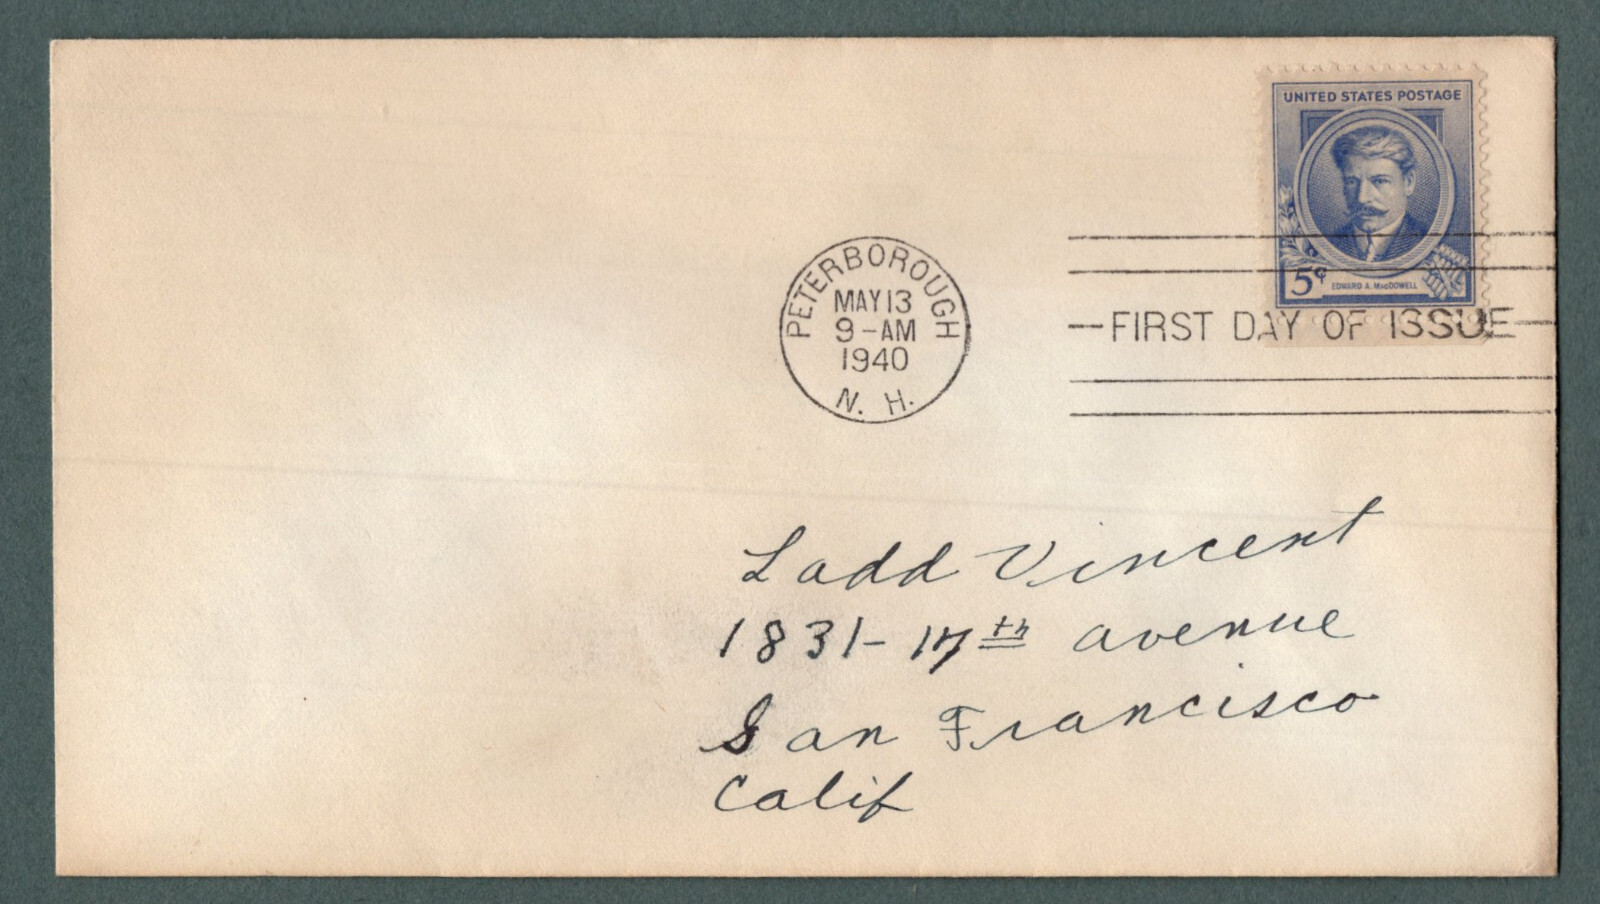 UNITED STATES POSTAGE
5¢
EDWARD A. MacDOWELL
PETERBOROUGH
MAY 13
9-AM
1940
N. H.
FIRST DAY OF ISSUE
Ladd Vincent
1831- 17th avenue
San Francisco
Calif